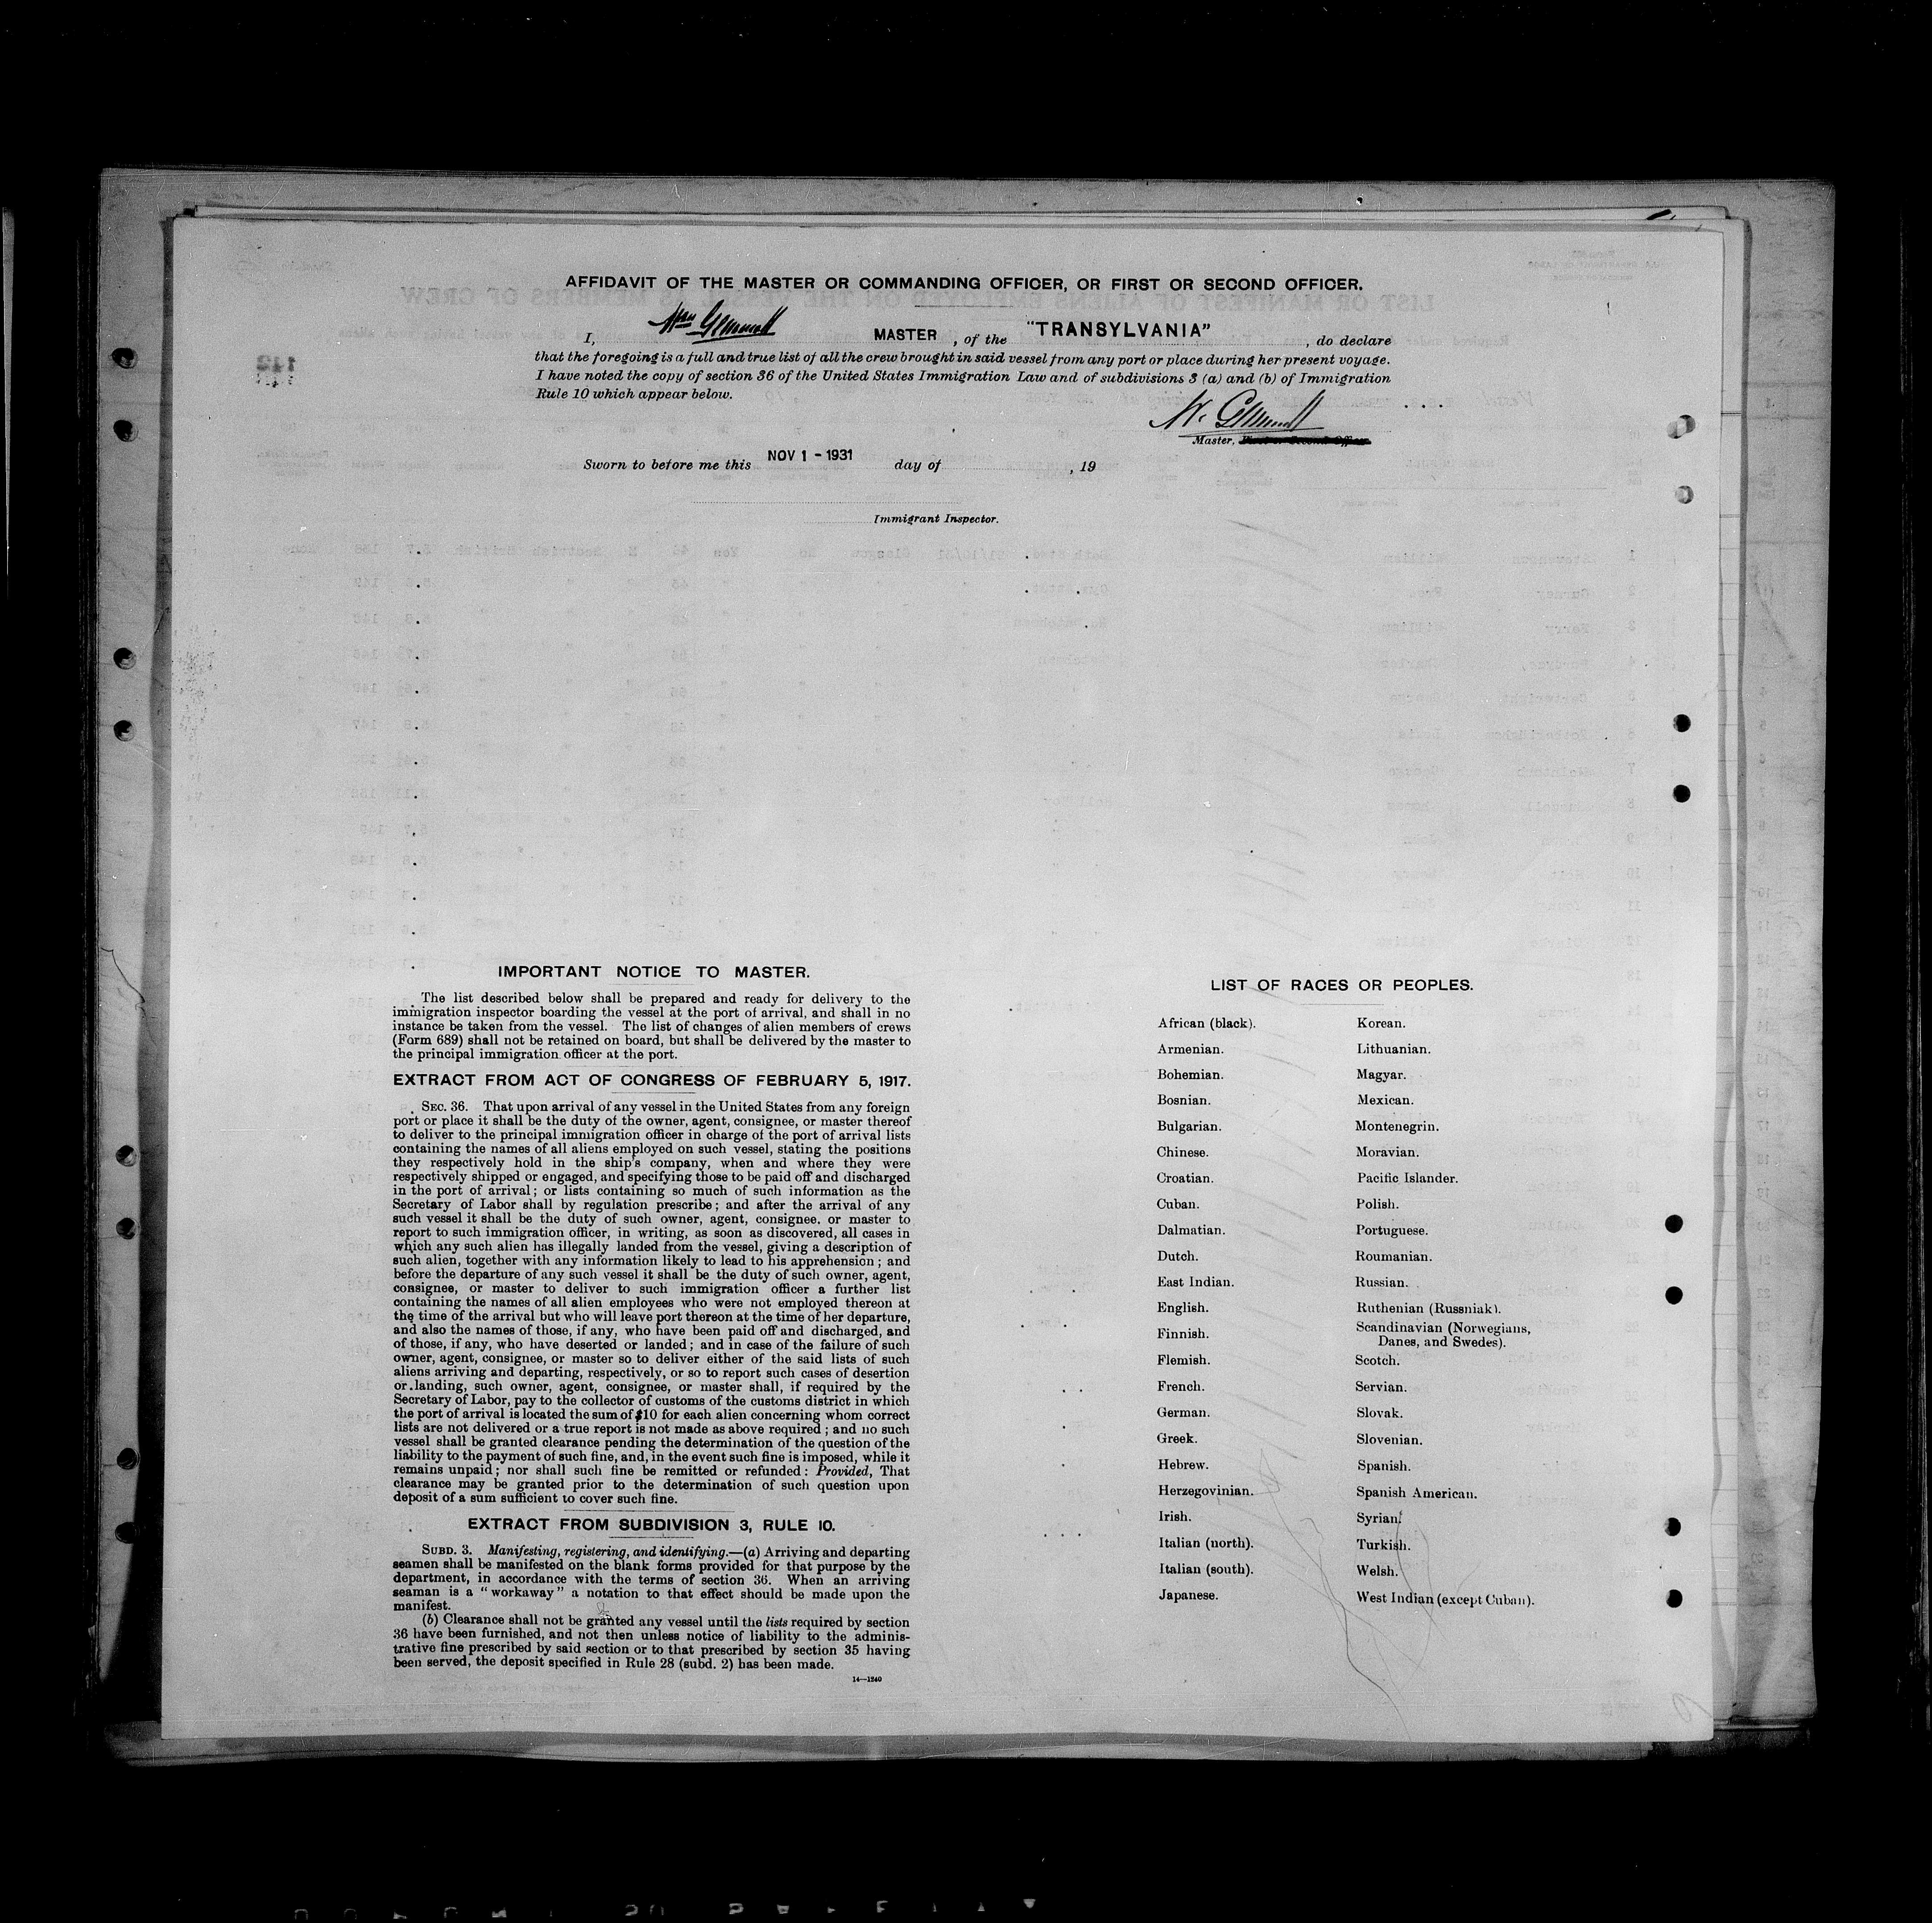 AFFIDAVIT OF THE MASTER OR COMMANDING OFFICER, OR FIRST OR SECOND OFFICER.
I, Wm Gemmell MASTER, of the "TRANSYLVANIA", do declare
that the foregoing is a full and true list of all the crew brought in said vessel from any port or place during her present voyage.
I have noted the copy of section 36 of the United States Immigration Law and of subdivisions 3 (a) and (b) of Immigration
Rule 10 which appear below.
W. Gemmell
Master, First or Second Officer.
Sworn to before me this NOV 1 - 1931 day of , 19
Immigrant Inspector.
IMPORTANT NOTICE TO MASTER.
The list described below shall be prepared and ready for delivery to the
immigration inspector boarding the vessel at the port of arrival, and shall in no
instance be taken from the vessel. The list of changes of alien members of crews
(Form 689) shall not be retained on board, but shall be delivered by the master to
the principal immigration officer at the port.
EXTRACT FROM ACT OF CONGRESS OF FEBRUARY 5, 1917.
SEC. 36. That upon arrival of any vessel in the United States from any foreign
port or place it shall be the duty of the owner, agent, consignee, or master thereof
to deliver to the principal immigration officer in charge of the port of arrival lists
containing the names of all aliens employed on such vessel, stating the positions
they respectively hold in the ship's company, when and where they were
respectively shipped or engaged, and specifying those to be paid off and discharged
in the port of arrival; or lists containing so much of such information as the
Secretary of Labor shall by regulation prescribe; and after the arrival of any
such vessel it shall be the duty of such owner, agent, consignee, or master to
report to such immigration officer, in writing, as soon as discovered, all cases in
which any such alien has illegally landed from the vessel, giving a description of
such alien, together with any information likely to lead to his apprehension; and
before the departure of any such vessel it shall be the duty of such owner, agent,
consignee, or master to deliver to such immigration officer a further list
containing the names of all alien employees who were not employed thereon at
the time of the arrival but who will leave port thereon at the time of her departure,
and also the names of those, if any, who have been paid off and discharged, and
of those, if any, who have deserted or landed; and in case of the failure of such
owner, agent, consignee, or master so to deliver either of the said lists of such
aliens arriving and departing, respectively, or so to report such cases of desertion
or landing, such owner, agent, consignee, or master shall, if required by the
Secretary of Labor, pay to the collector of customs of the customs district in which
the port of arrival is located the sum of $10 for each alien concerning whom correct
lists are not delivered or a true report is not made as above required; and no such
vessel shall be granted clearance pending the determination of the question of the
liability to the payment of such fine, and, in the event such fine is imposed, while it
remains unpaid; nor shall such fine be remitted or refunded: Provided, That
clearance may be granted prior to the determination of such question upon
deposit of a sum sufficient to cover such fine.
EXTRACT FROM SUBDIVISION 3, RULE 10.
SUBD. 3. Manifesting, registering, and identifying.—(a) Arriving and departing
seamen shall be manifested on the blank forms provided for that purpose by the
department, in accordance with the terms of section 36. When an arriving
seaman is a "workaway" a notation to that effect should be made upon the
manifest.
(b) Clearance shall not be granted any vessel until the lists required by section
36 have been furnished, and not then unless notice of liability to the adminis-
trative fine prescribed by said section or to that prescribed by section 35 having
been served, the deposit specified in Rule 28 (subd. 2) has been made.
14—1240
LIST OF RACES OR PEOPLES.
African (black).
Armenian.
Bohemian.
Bosnian.
Bulgarian.
Chinese.
Croatian.
Cuban.
Dalmatian.
Dutch.
East Indian.
English.
Finnish.
Flemish.
French.
German.
Greek.
Hebrew.
Herzegovinian.
Irish.
Italian (north).
Italian (south).
Japanese.
Korean.
Lithuanian.
Magyar.
Mexican.
Montenegrin.
Moravian.
Pacific Islander.
Polish.
Portuguese.
Roumanian.
Russian.
Ruthenian (Russniak).
Scandinavian (Norwegians,
Danes, and Swedes).
Scotch.
Servian.
Slovak.
Slovenian.
Spanish.
Spanish American.
Syrian.
Turkish.
Welsh.
West Indian (except Cuban).